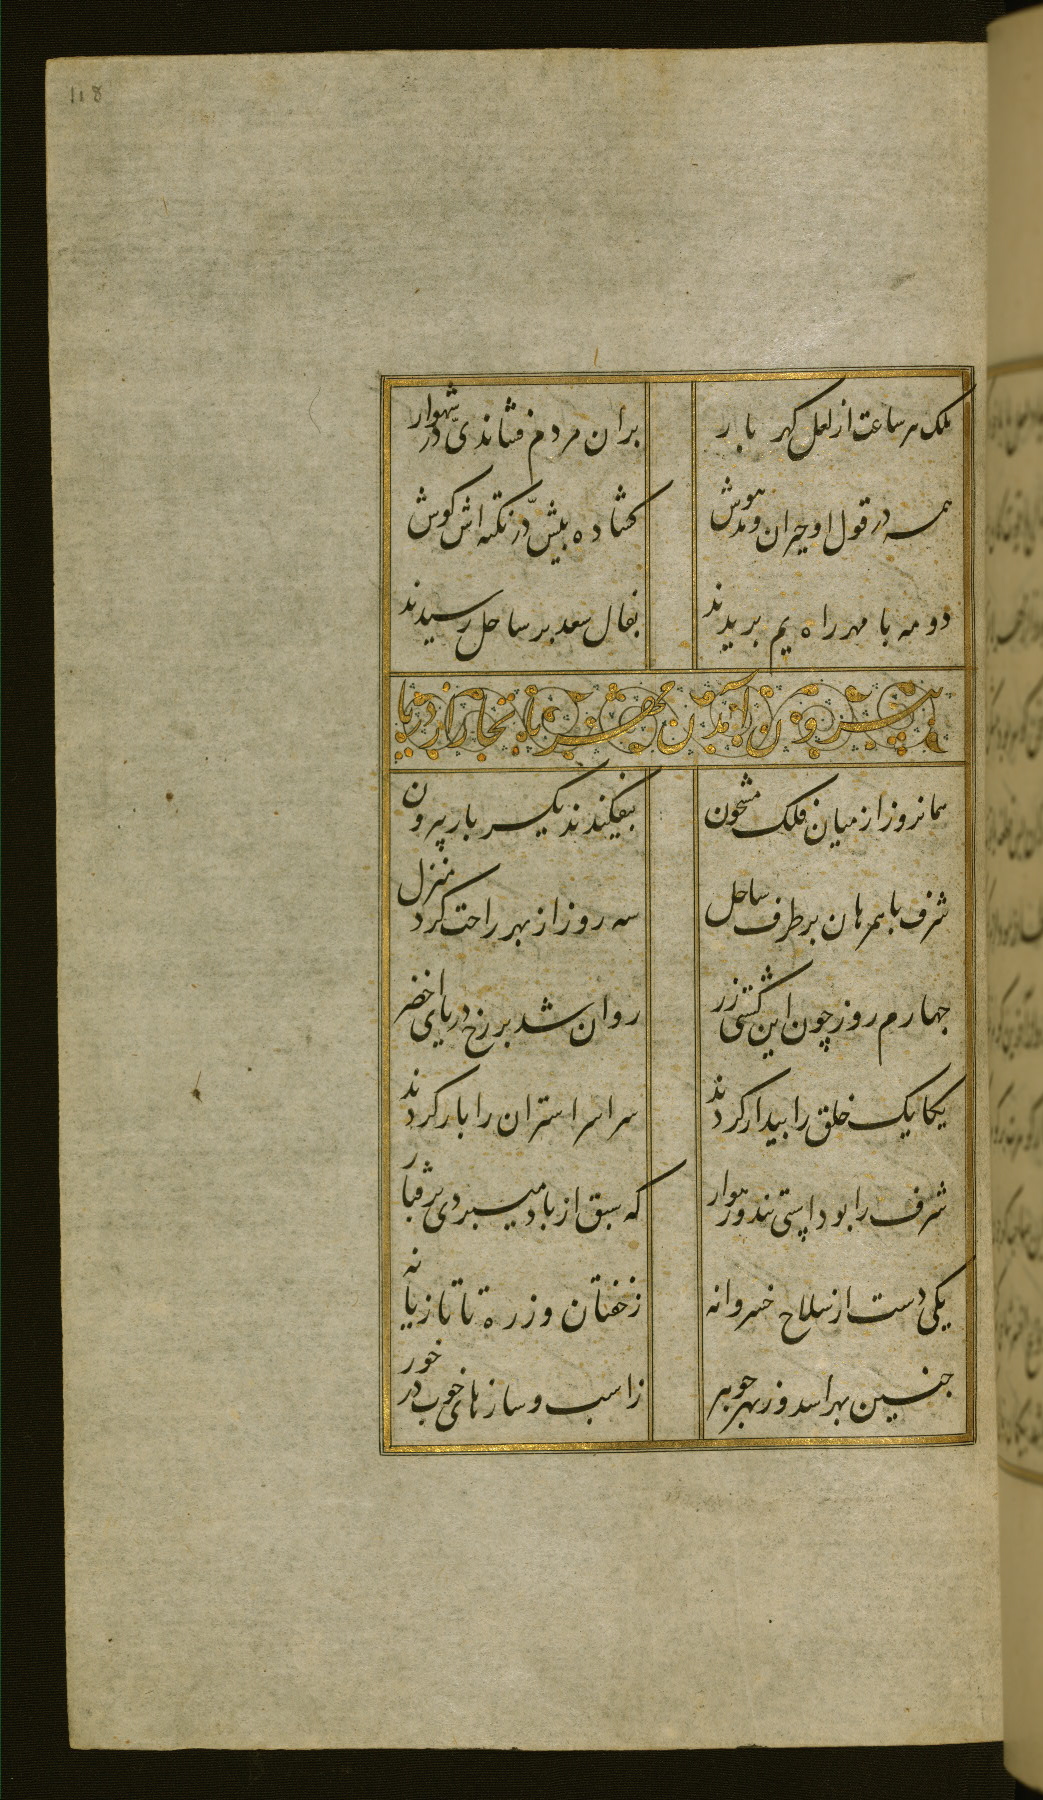 118
ملک هر ساعت از لعل کهر بار
بران مردم فشاندی در شهوار
همه در قول او حیران و مدهوش
کشاده پیش در نکته اش کوش
دو مه با مهر راه یم بریدند
بفال سعد بر ساحل رسیدند
بیرون آمدن مهر با تجار از دریا
همانروز از میان فلک مشحون
بیفکندند یکسر بار بیرون
شرف با همرهان بر طرف ساحل
سه روز از بهر راحت کرد منزل
چهارم روز چون این کشتی زر
روان شد بر رخ دریای اخضر
یکایک خلق را بیدار کردند
سراسر استران را بار کردند
شرف را بود اسپی تند و رهوار
که سبق از باد میبردی برفتار
یکی دست از سلاح خسروانه
ز خفتان و زره تا تازیانه
چنین بهر اسد و ز بهر جوهر
ز اسب و سازهای خوب در خور